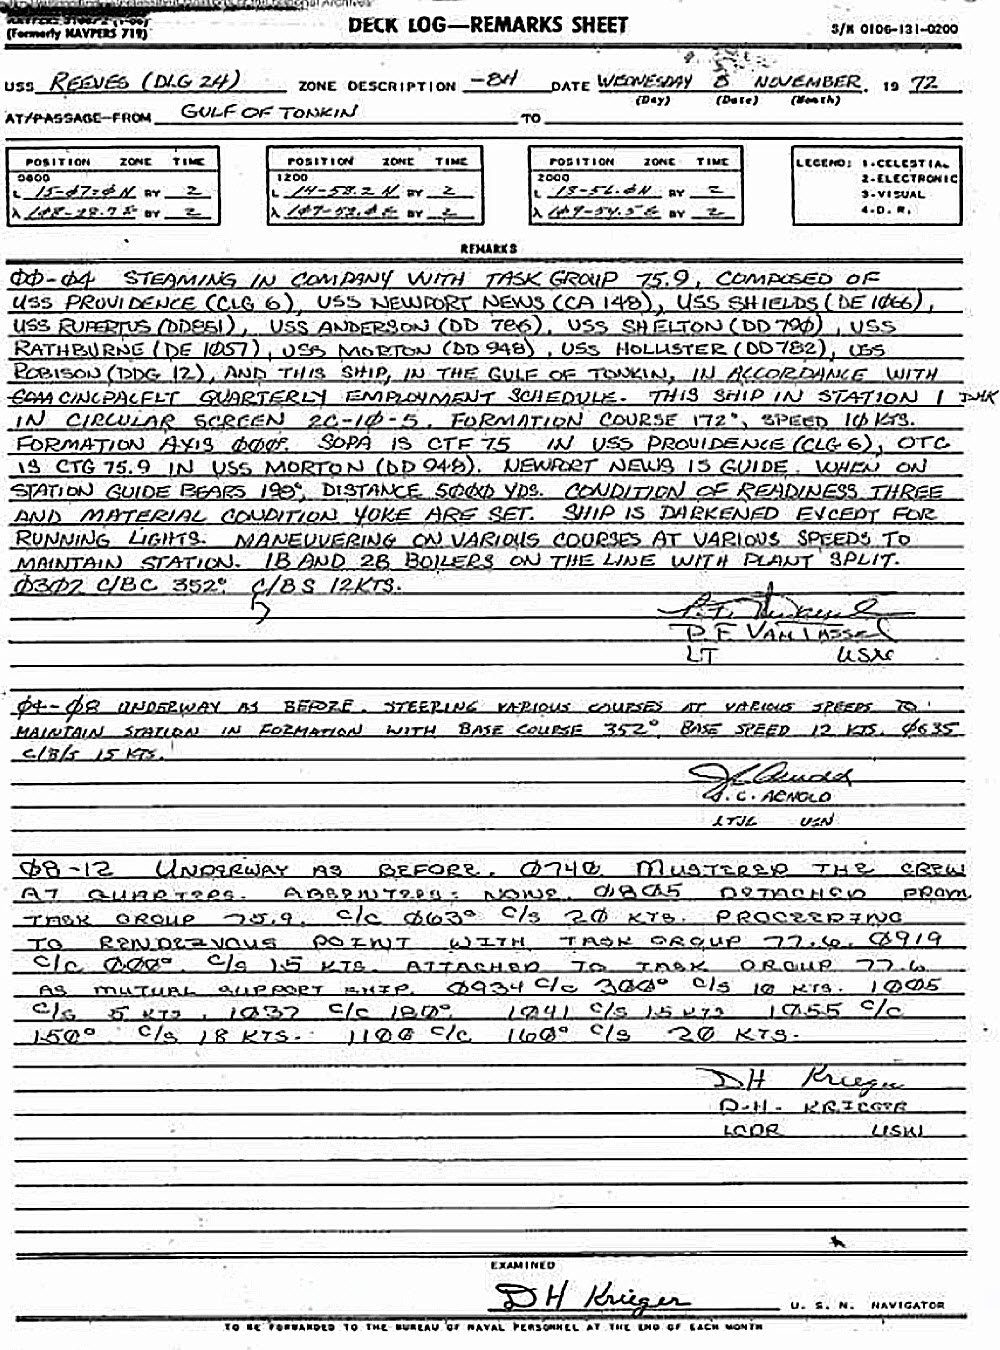 NAVPERS 3100/2 (1-68)
(Formerly NAVPERS 719)
DECK LOG—REMARKS SHEET
S/N 0106-131-0200
USS REEVES (DLG 24) ZONE DESCRIPTION -8H DATE WEDNESDAY 8 NOVEMBER, 19 72
(Day) (Date) (Month)
AT/PASSAGE—FROM GULF OF TONKIN TO
POSITION ZONE TIME POSITION ZONE TIME POSITION ZONE TIME LEGEND: 1-CELESTIAL
0800 1200 2000 2-ELECTRONIC
L BY 2 L BY 2 L BY 2 3-VISUAL
λ BY 2 λ BY 2 λ BY 2 4-D. R.
REMARKS
ØØ-Ø4 STEAMING IN COMPANY WITH TASK GROUP 75.9, COMPOSED OF
USS PROVIDENCE (CLG 6), USS NEWPORT NEWS (CA 148), USS SHIELDS (DE 1Ø66),
USS RUPERTUS (DD851), USS ANDERSON (DD 786), USS SHELTON (DD 79Ø), USS
RATHBURNE (DE 1Ø57), USS MORTON (DD 948), USS HOLLISTER (DD 782), USS
ROBISON (DDG 12), AND THIS SHIP, IN THE GULF OF TONKIN, IN ACCORDANCE WITH
CINCPACFLT QUARTERLY EMPLOYMENT SCHEDULE. THIS SHIP IN STATION 1
IN CIRCULAR SCREEN 2C-1Ø-5. FORMATION COURSE 172°, SPEED 1Ø KTS.
FORMATION AXIS ØØØ°. SOPA IS CTF 75 IN USS PROVIDENCE (CLG 6), OTC
IS CTG 75.9 IN USS MORTON (DD 948). NEWPORT NEWS IS GUIDE. WHEN ON
STATION GUIDE BEARS 19Ø°, DISTANCE 5ØØØ YDS. CONDITION OF READINESS THREE
AND MATERIAL CONDITION YOKE ARE SET. SHIP IS DARKENED EXCEPT FOR
RUNNING LIGHTS. MANEUVERING ON VARIOUS COURSES AT VARIOUS SPEEDS TO
MAINTAIN STATION. 1B AND 2B BOILERS ON THE LINE WITH PLANT SPLIT.
Ø3Ø7 C/BC 352° C/BS 12KTS.
VAN
LT USN
Ø4-Ø8 UNDERWAY AS BEFORE. STEERING VARIOUS COURSES AT VARIOUS SPEEDS TO
MAINTAIN STATION IN FORMATION WITH BASE COURSE 352°, BASE SPEED 12 KTS. Ø635
C/B/S 15 KTS.
J. C. ARNOLD
LTJG USN
Ø8-12 UNDERWAY AS BEFORE. Ø74Ø MUSTERED THE CREW
AT QUARTERS. ABSENTEES: NONE. Ø8Ø5 DETACHED FROM
TASK GROUP 75.9. C/C Ø63° C/S 2Ø KTS. PROCEEDING
TO RENDEZVOUS POINT WITH TASK GROUP 77.6. Ø919
C/C ØØØ°. C/S 15 KTS. ATTACHED TO TASK GROUP 77.6
AS MUTUAL SUPPORT SHIP. Ø934 C/C 3ØØ° C/S 1Ø KTS. 1ØØ5
C/S 5 KTS. 1Ø37 C/C 18Ø°. 1Ø41 C/S 15 KTS 1Ø55 C/C
15Ø° C/S 18 KTS. 11ØØ C/C 16Ø° C/S 2Ø KTS.
DH Krieger
D.H. KRIEGER
LCDR USN
EXAMINED
DH Krieger U. S. N. NAVIGATOR
TO BE FORWARDED TO THE BUREAU OF NAVAL PERSONNEL AT THE END OF EACH MONTH